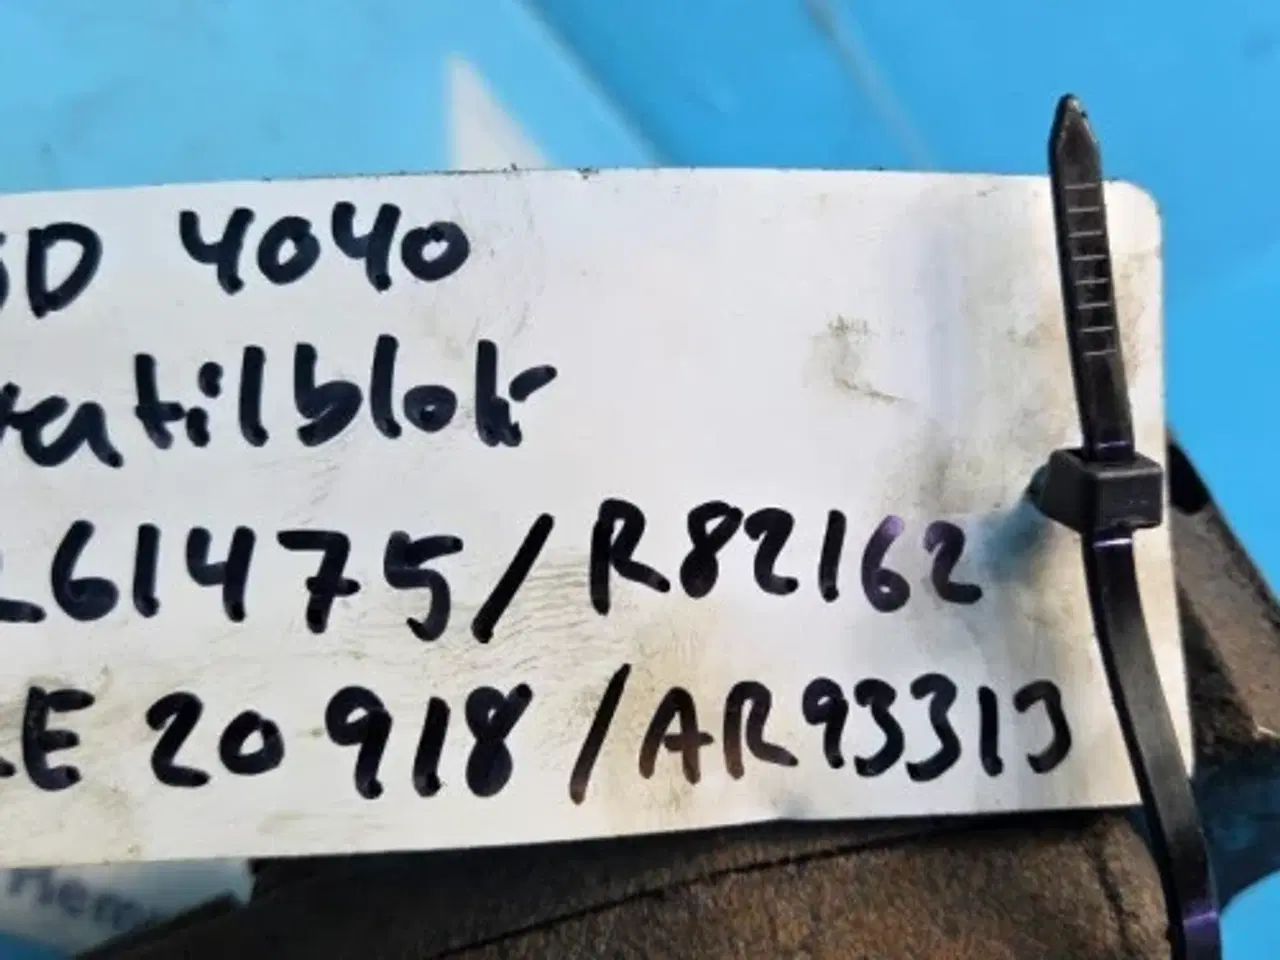 JD 4040
ventilblok
R61475/R82162
RE 20918/AR93313